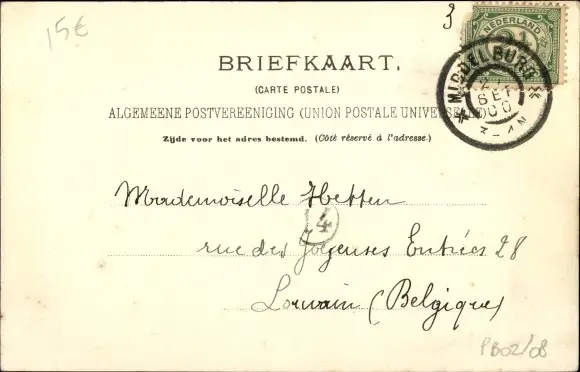 15€
3
NEDERLAND
2½
MIDDELBURG
SEP
00
3-4N
BRIEFKAART.
(CARTE POSTALE)
ALGEMEENE POSTVEREENIGING (UNION POSTALE UNIVERSELLE)
Zijde voor het adres bestemd. (Côté réservé à l'adresse.)
Mademoiselle Hetten
4
rue des Joyeuses Entrées 28
Louvain (Belgique)
PB02/08